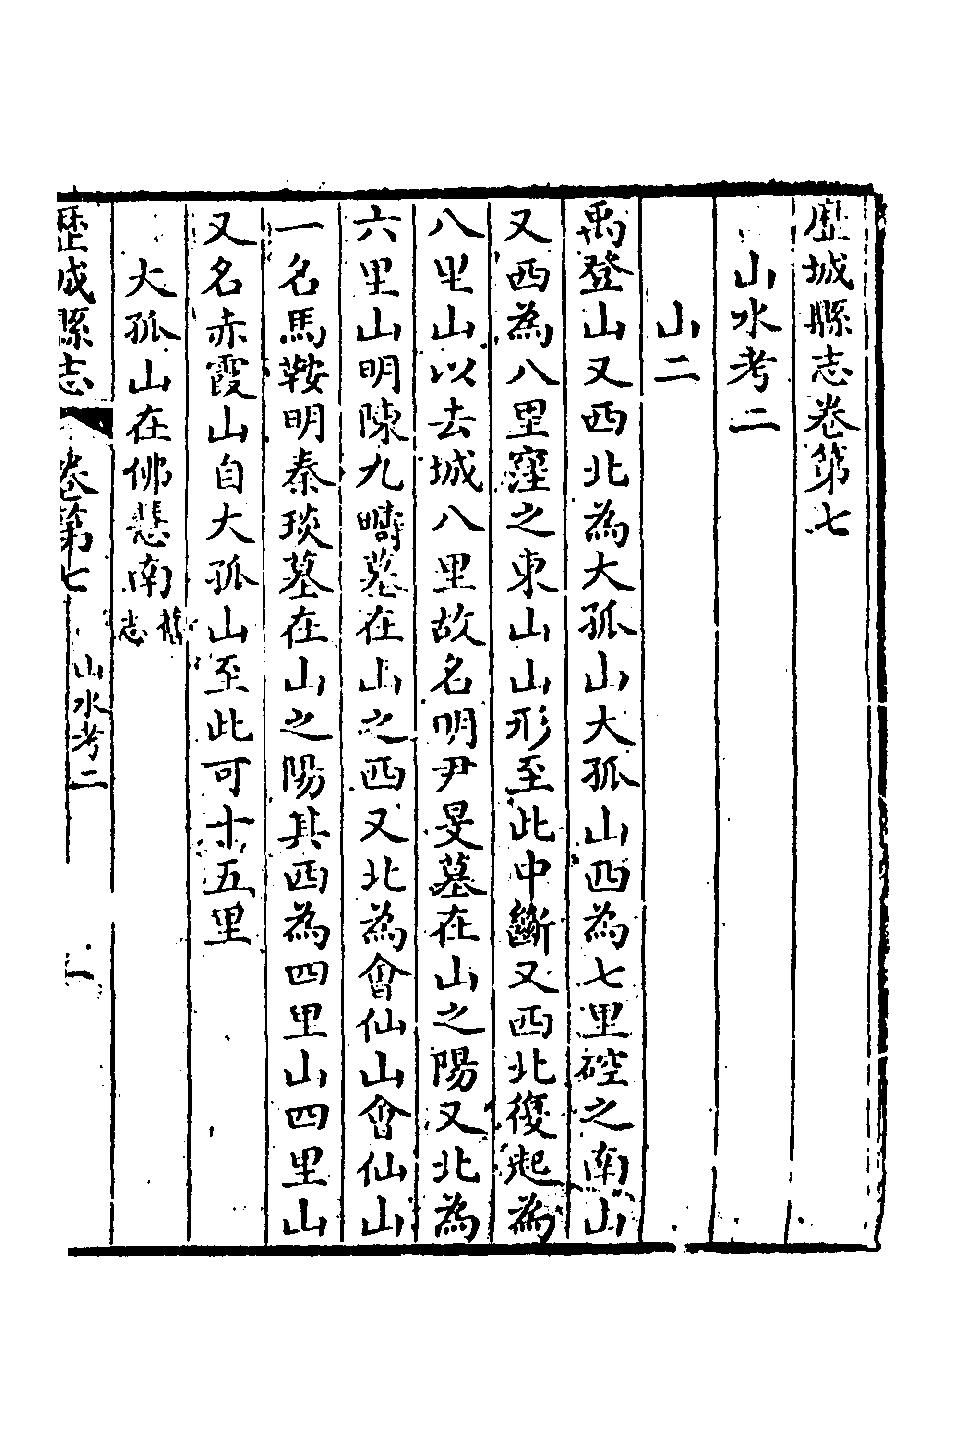 歷城縣志卷第七
山水考二
山二
禹登山又西北為大孤山大孤山西為七里硿之南山
又西為八里窪之東山山形至此中斷又西北復起為
八里山以去城八里故名明尹旻墓在山之陽又北為
六里山明陳九疇墓在山之西又北為會仙山會仙山
一名馬鞍明秦琰墓在山之陽其西為四里山四里山
又名赤霞山自大孤山至此可十五里
大孤山在佛慧南舊志
歷城縣志 卷第七 山水考二 一